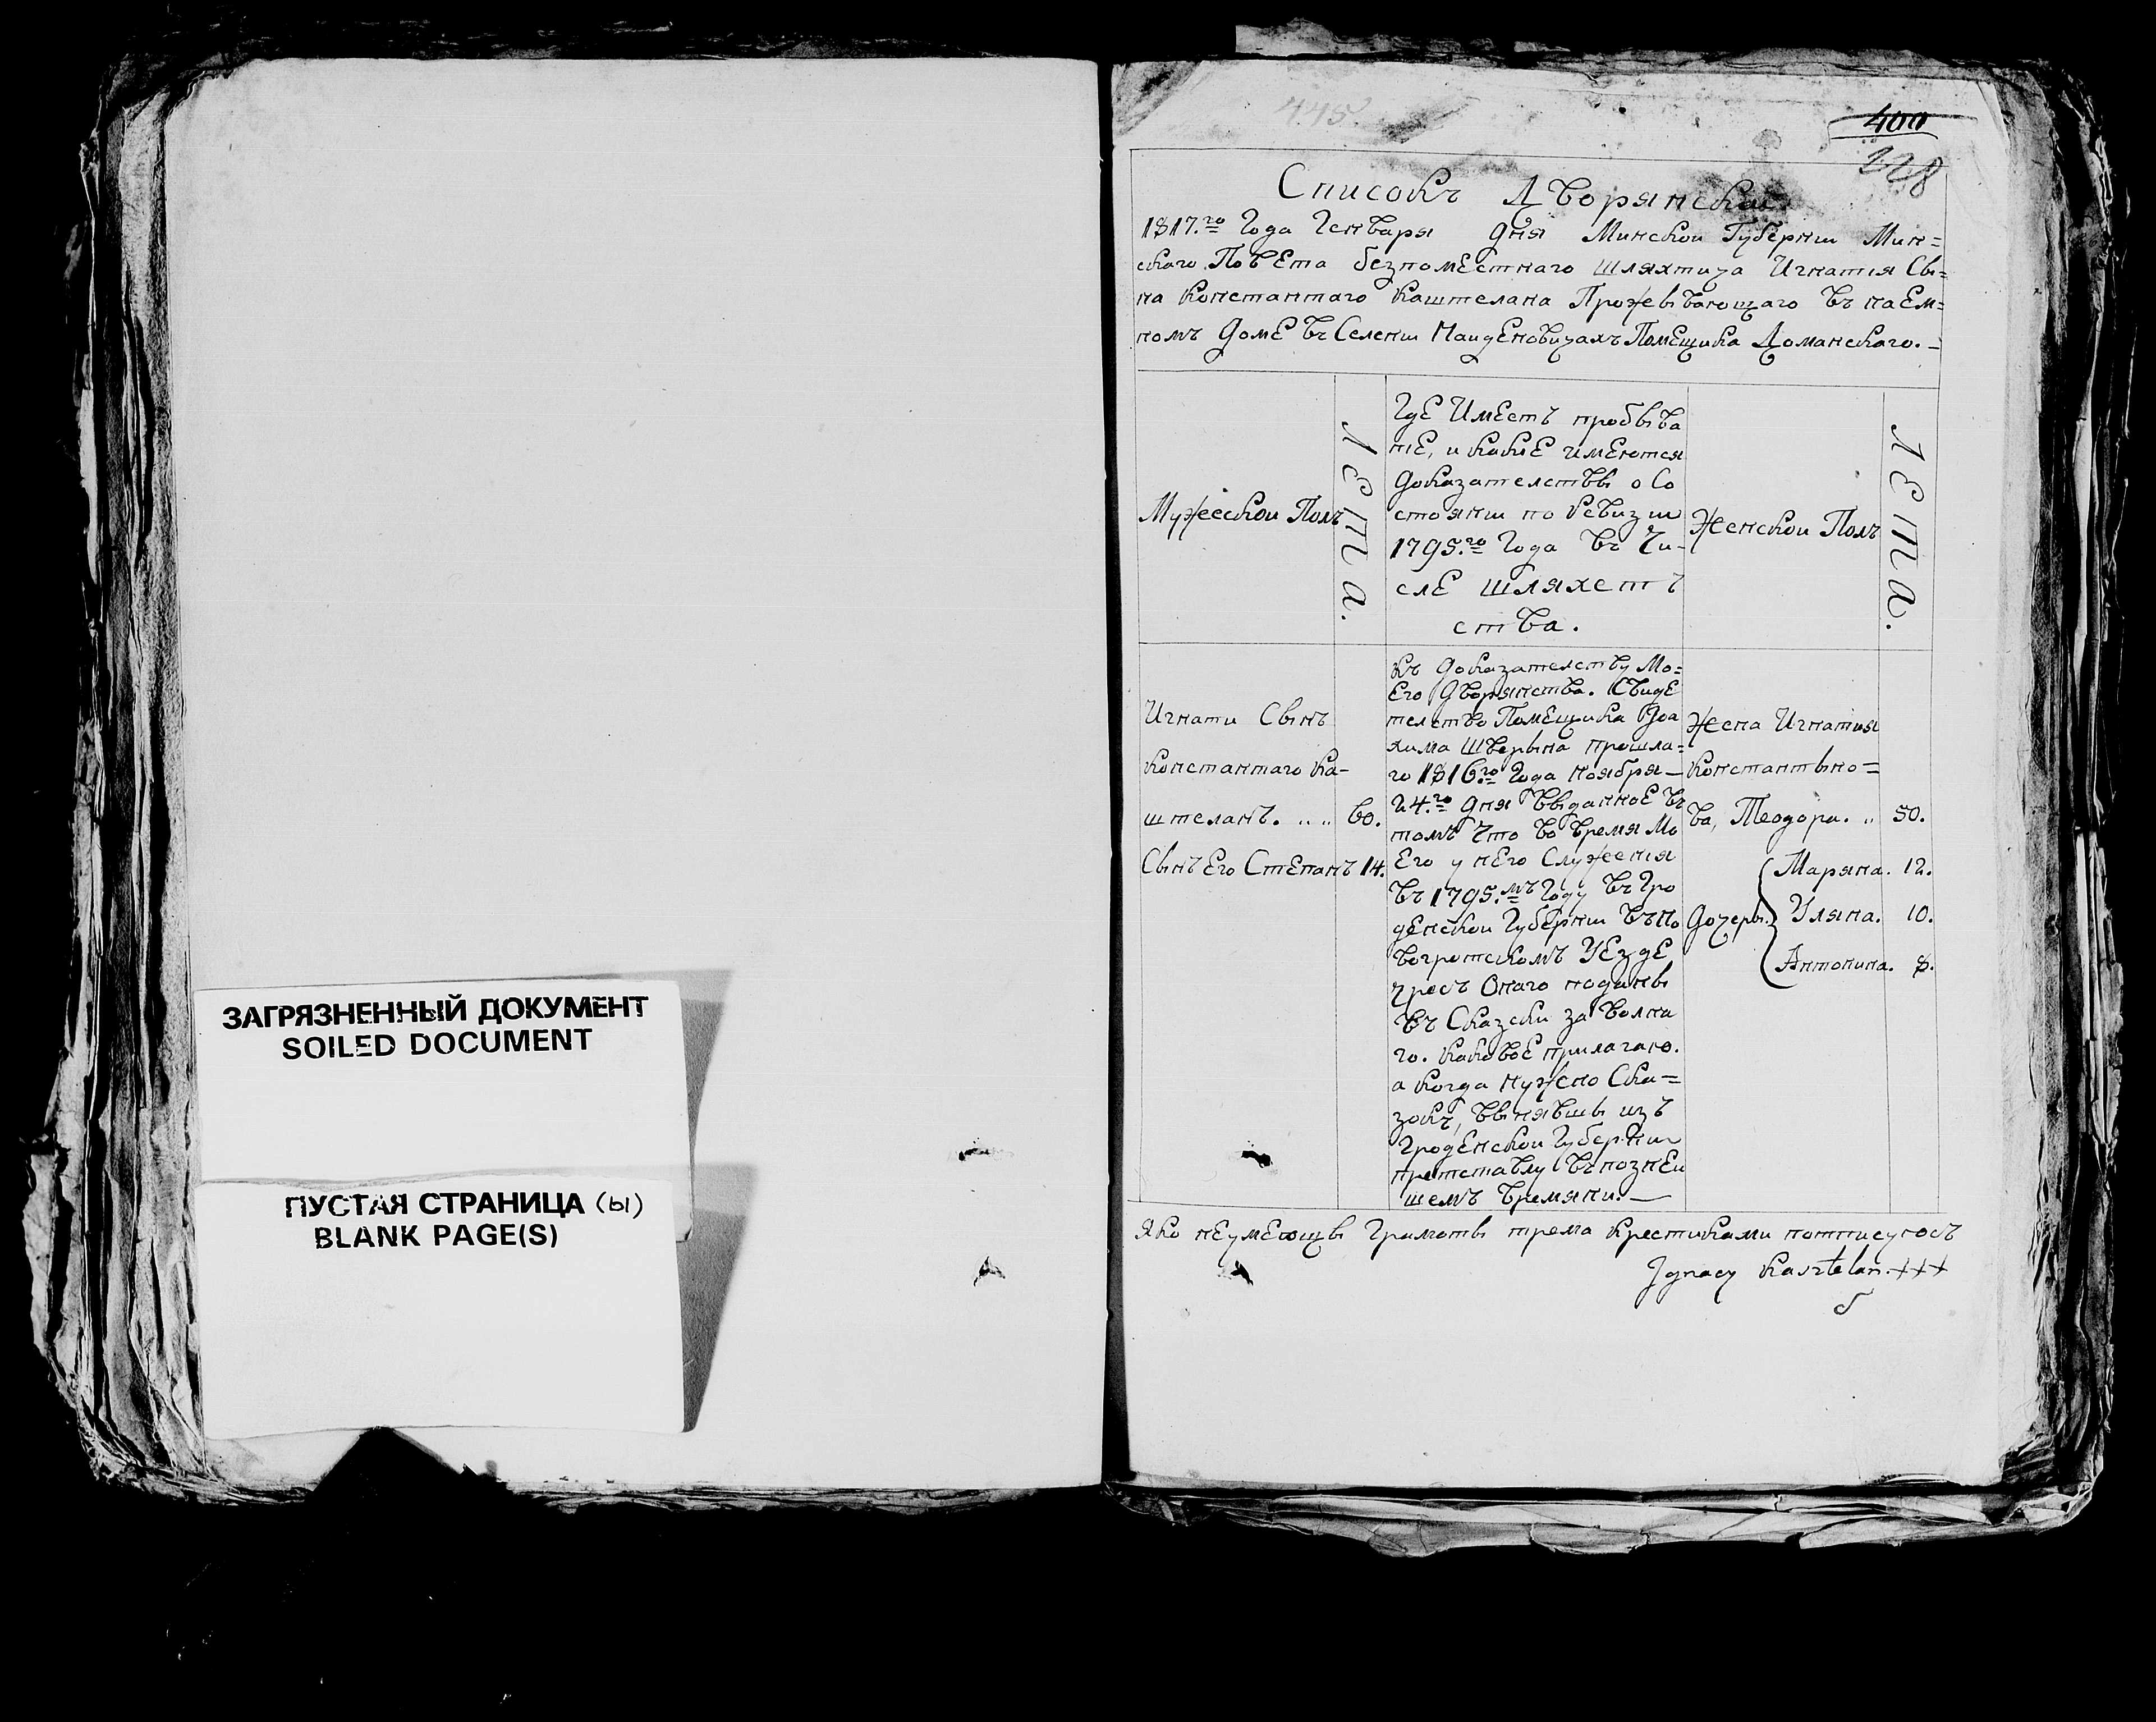 ЗАГРЯЗНЕННЫЙ ДОКУМЕНТ
SOILED DOCUMENT
ПУСТАЯ СТРАНИЦА (ы)
BLANK PAGE(S)
445
400
228
Списокъ Дворянской
1817.го Года Генваря дня Минской Губернии Мин=
скаго Повета безпоместнаго шляхтича Игнатия Сы=
на Константаго Каштелана Прожевывающаго въ наем=
номъ доме въ Селении Наиденовичахъ Помещика Доманскаго. –
Мужескои Полъ
лета.
Где Иместъ пробыва
ние, и какие имеются
доказателствы о Со
стоянии по Ревизии
1795.го Года въ Чи-
сле шляхетъ
ства.
Женскои Полъ
лета.
Игнати Сынъ
Константаго Ка-
штеланъ. „ „ 60.
Сынъ Его Степанъ 14.
Къ доказателству Мо=
его дворянства. Свиде
телство Помещика Іоа
хима Шверына прошла=
го 1816.го Года ноября –
24.го дня выданное въ
томъ что во время Мо
его у него Служения
въ 1795.мъ Году въ Гро
денской Губернии въ Но
вогротскомъ Уезде
чресъ Онаго поданы
въ Сказски за волна
го. каковое прилагаю.
а когда нужно Ска=
зокъ, вынявшы изъ
Гроденской Губернии
претставлу въ познеи
шемъ времяни. –
Жена Игнатия
Константыно=
ва, Теодора. „ 50.
дочеры.
Маряна. 12.
Уляна. 10.
Антонина. 8.
Яко неумеющы Грамоты трема крестиками потписуюсъ
Jgnacy Kasztelan. +++